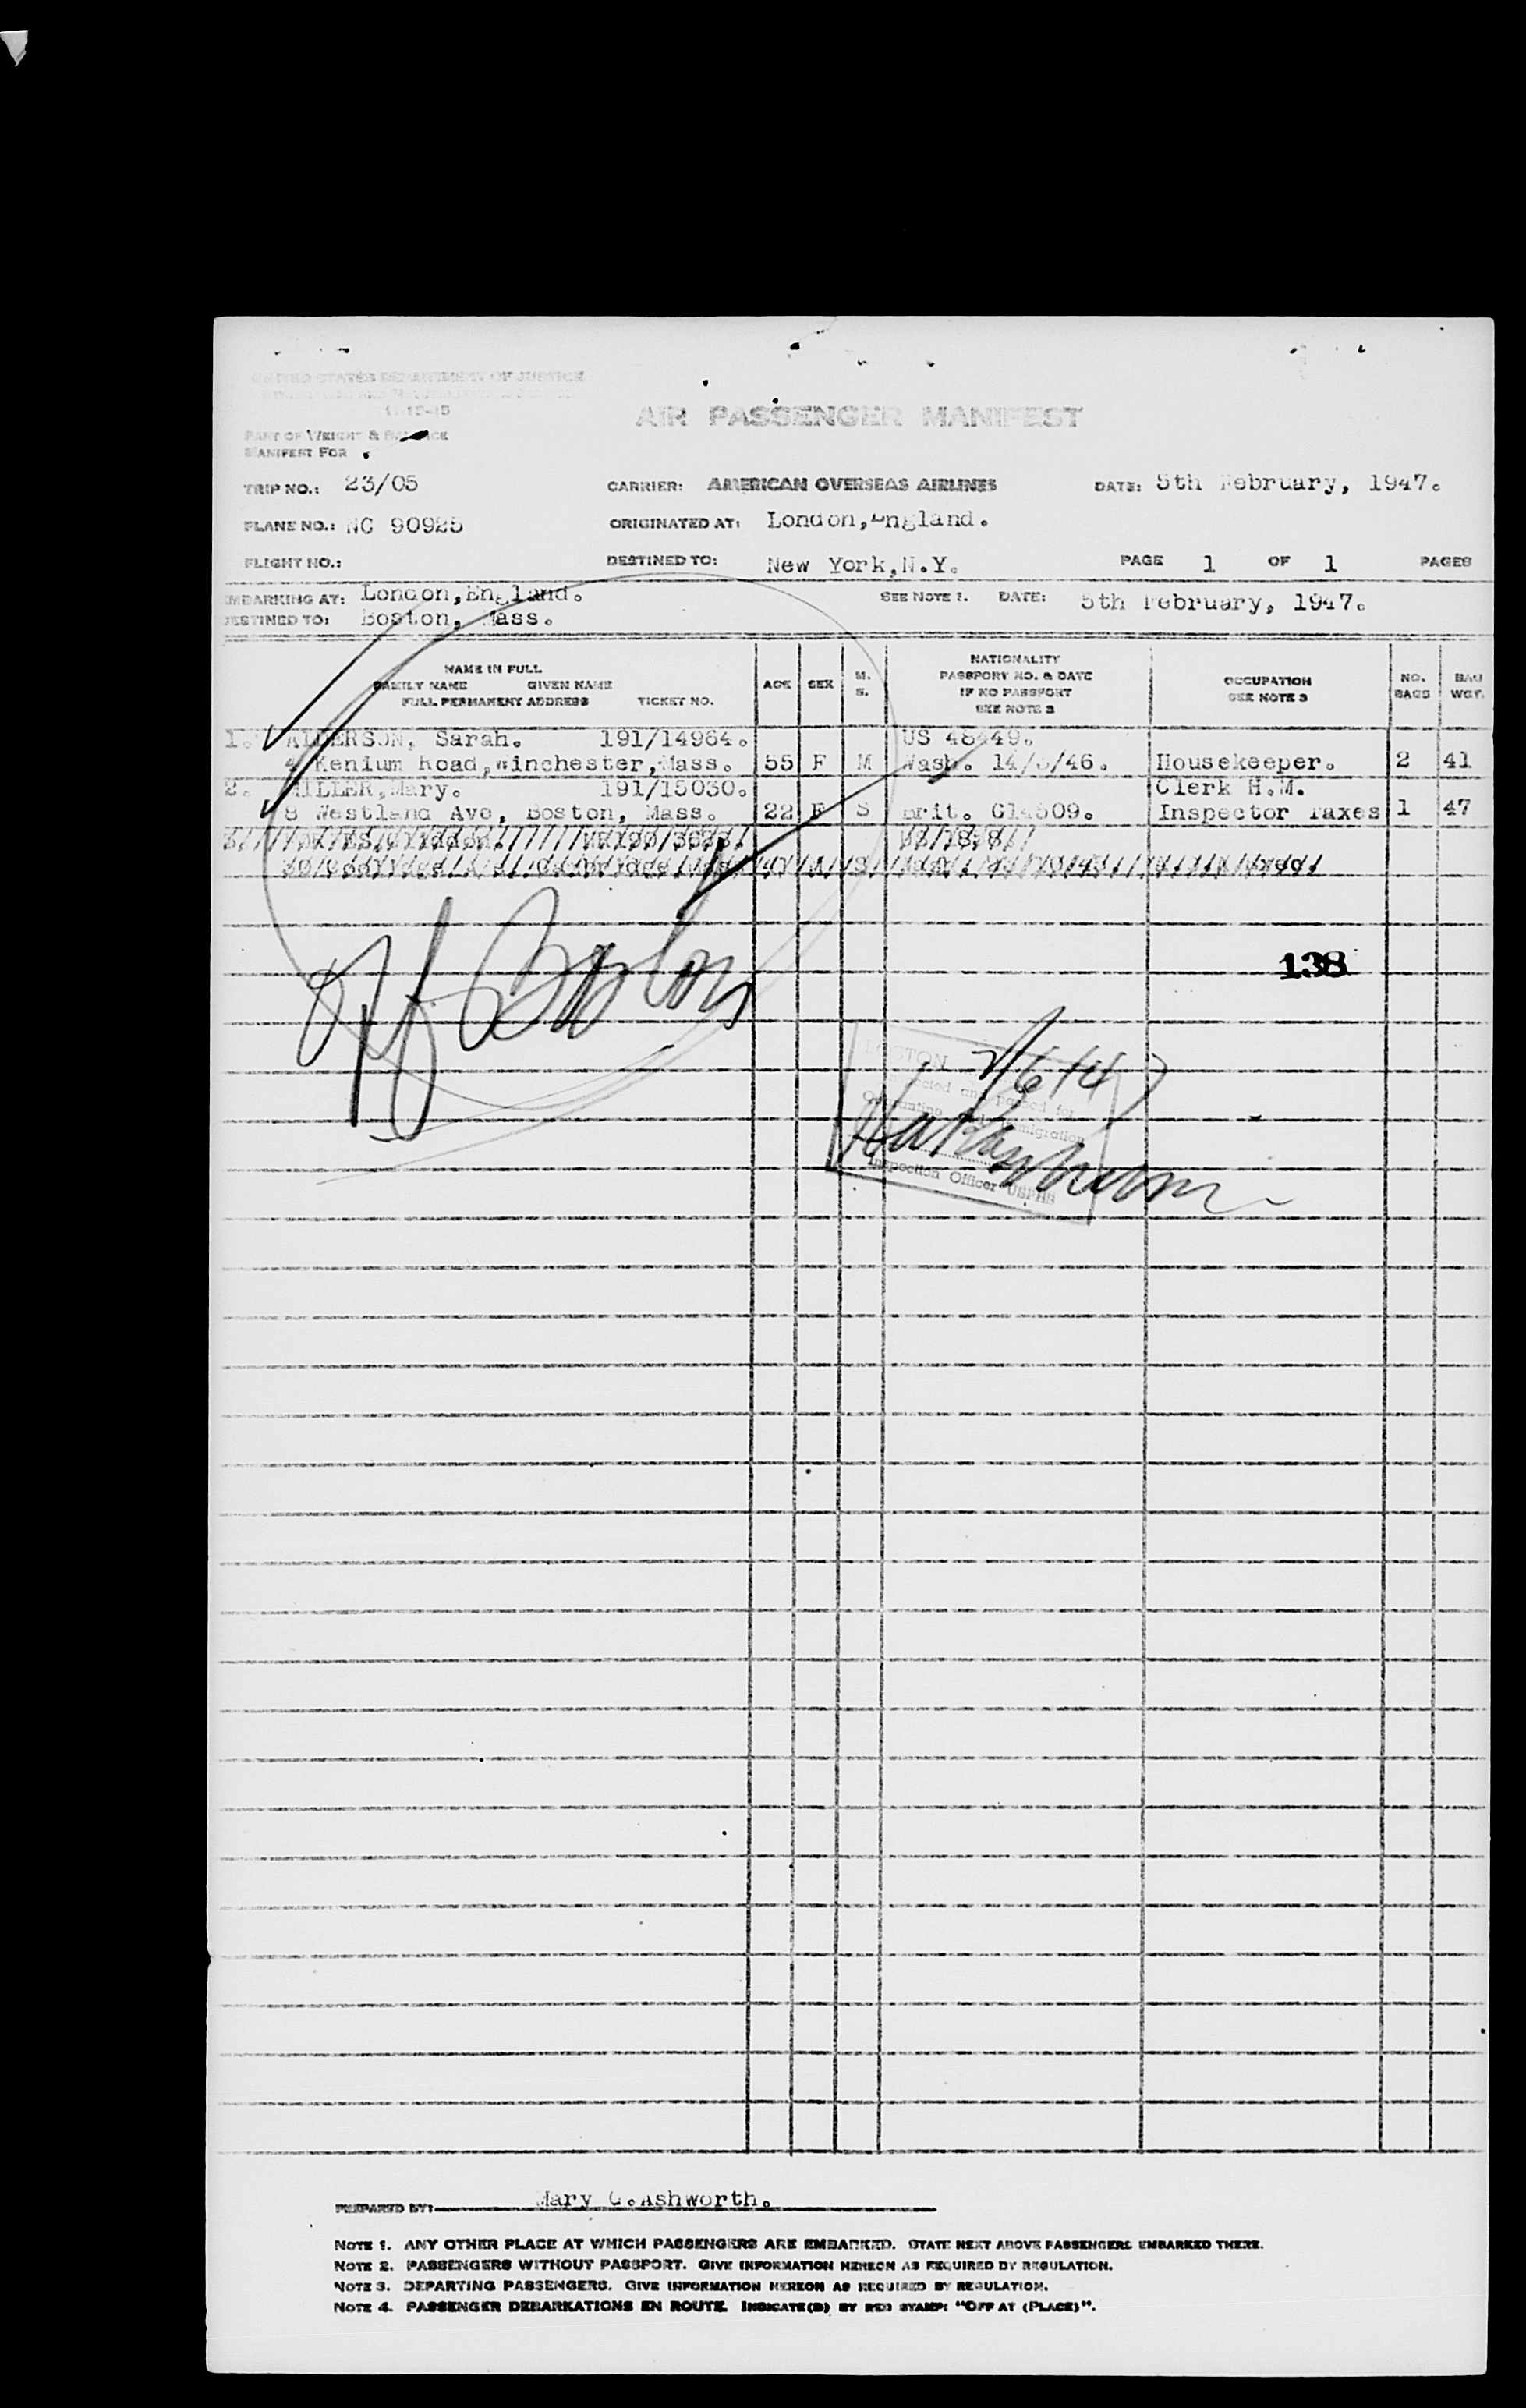 UNITED STATES DEPARTMENT OF JUSTICE
11-15-45
AIR PASSENGER MANIFEST
PART OF WEIGHT & BALANCE
MANIFEST FOR
TRIP NO.: 23/05 CARRIER: AMERICAN OVERSEAS AIRLINES DATE: 5th February, 1947.
PLANE NO.: NC 90925 ORIGINATED AT: London,England.
FLIGHT NO.: DESTINED TO: New York,N.Y. PAGE 1 OF 1 PAGES
EMBARKING AT: London,England. SEE NOTE 1. DATE: 5th February, 1947.
DESTINED TO: Boston, Mass.
NAME IN FULL
FAMILY NAME GIVEN NAME
FULL PERMANENT ADDRESS TICKET NO.
AGE SEX M. S.
NATIONALITY
PASSPORT NO. & DATE
IF NO PASSPORT
SEE NOTE 2
OCCUPATION
SEE NOTE 3
NO. BAGS
BAG WGT.
1. ALDERSON, Sarah. 191/14964. US 48449.
4 Kenium Road,Winchester,Mass. 55 F M Wash. 14/ /46. Housekeeper. 2 41
2. MILLER,Mary. 191/15030. Clerk H.M.
8 Westland Ave, Boston, Mass. 22 F S Brit. G14509. Inspector Taxes 1 47
Off Boston
138
BOSTON
2/6/47
Inspected and passed for
Quarantine and Immigration
Inspection Officer USPHS
PREPARED BY: Mary G.Ashworth.
NOTE 1. ANY OTHER PLACE AT WHICH PASSENGERS ARE EMBARKED. STATE NEXT ABOVE PASSENGERS EMBARKED THERE.
NOTE 2. PASSENGERS WITHOUT PASSPORT. GIVE INFORMATION HEREON AS REQUIRED BY REGULATION.
NOTE 3. DEPARTING PASSENGERS. GIVE INFORMATION HEREON AS REQUIRED BY REGULATION.
NOTE 4. PASSENGER DEBARKATIONS EN ROUTE. INDICATE(D) BY RED STAMP: "OFF AT (PLACE)".